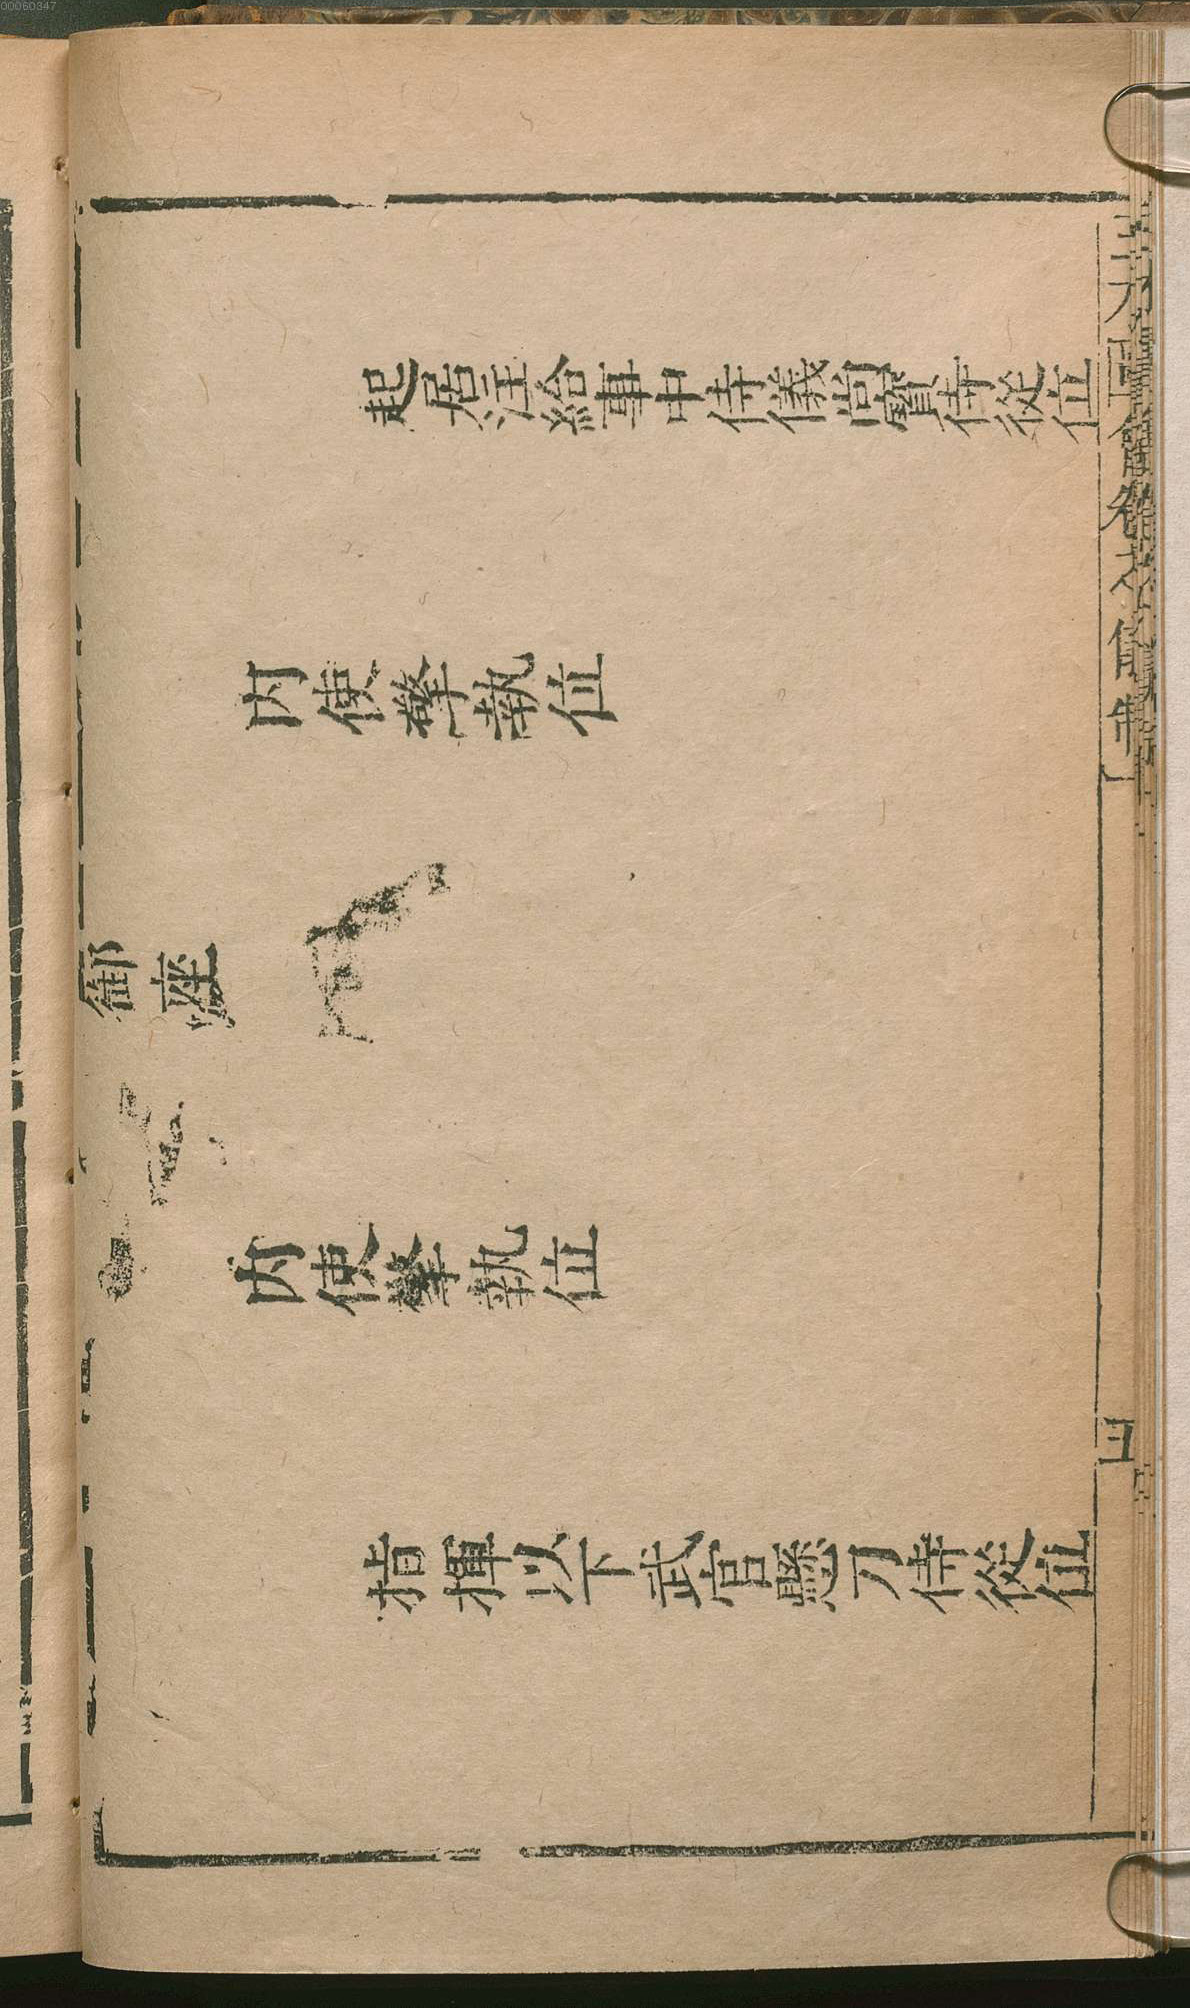 00060347
起居注給事中侍儀尚寶侍從位
内使擎執位
御座
内使擎執位
指揮以下武官懸刀侍從位